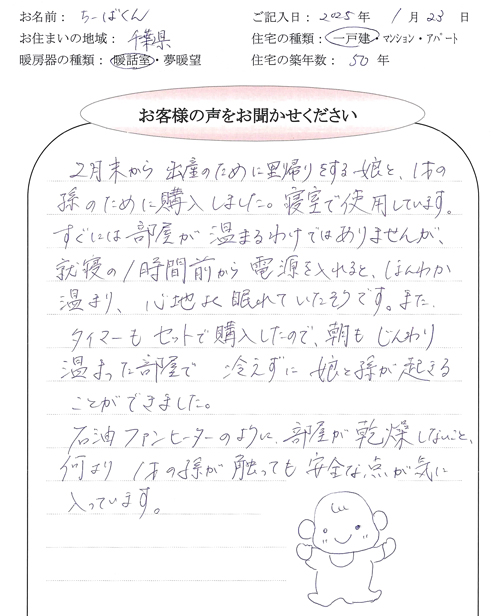 お名前： ちーばくん
ご記入日： 2025 年 1 月 23 日
お住まいの地域： 千葉県
住宅の種類： 一戸建・マンション・アパート
暖房器の種類： 暖話室・夢暖望
住宅の築年数： 50 年
お客様の声をお聞かせください
2月末から 出産のために里帰りをする娘と、1才の
孫のために購入しました。寝室で使用しています。
すぐには部屋が温まるわけではありませんが、
就寝の1時間前から電源を入れると、ほんわか
温まり、心地よく眠れていたそうです。また、
タイマーもセットで購入したので、朝もじんわり
温まった部屋で 冷えずに娘と孫が起きる
ことができました。
石油ファンヒーターのように、部屋が乾燥しないこと、
何より 1才の孫が触っても安全な点が気に
入っています。